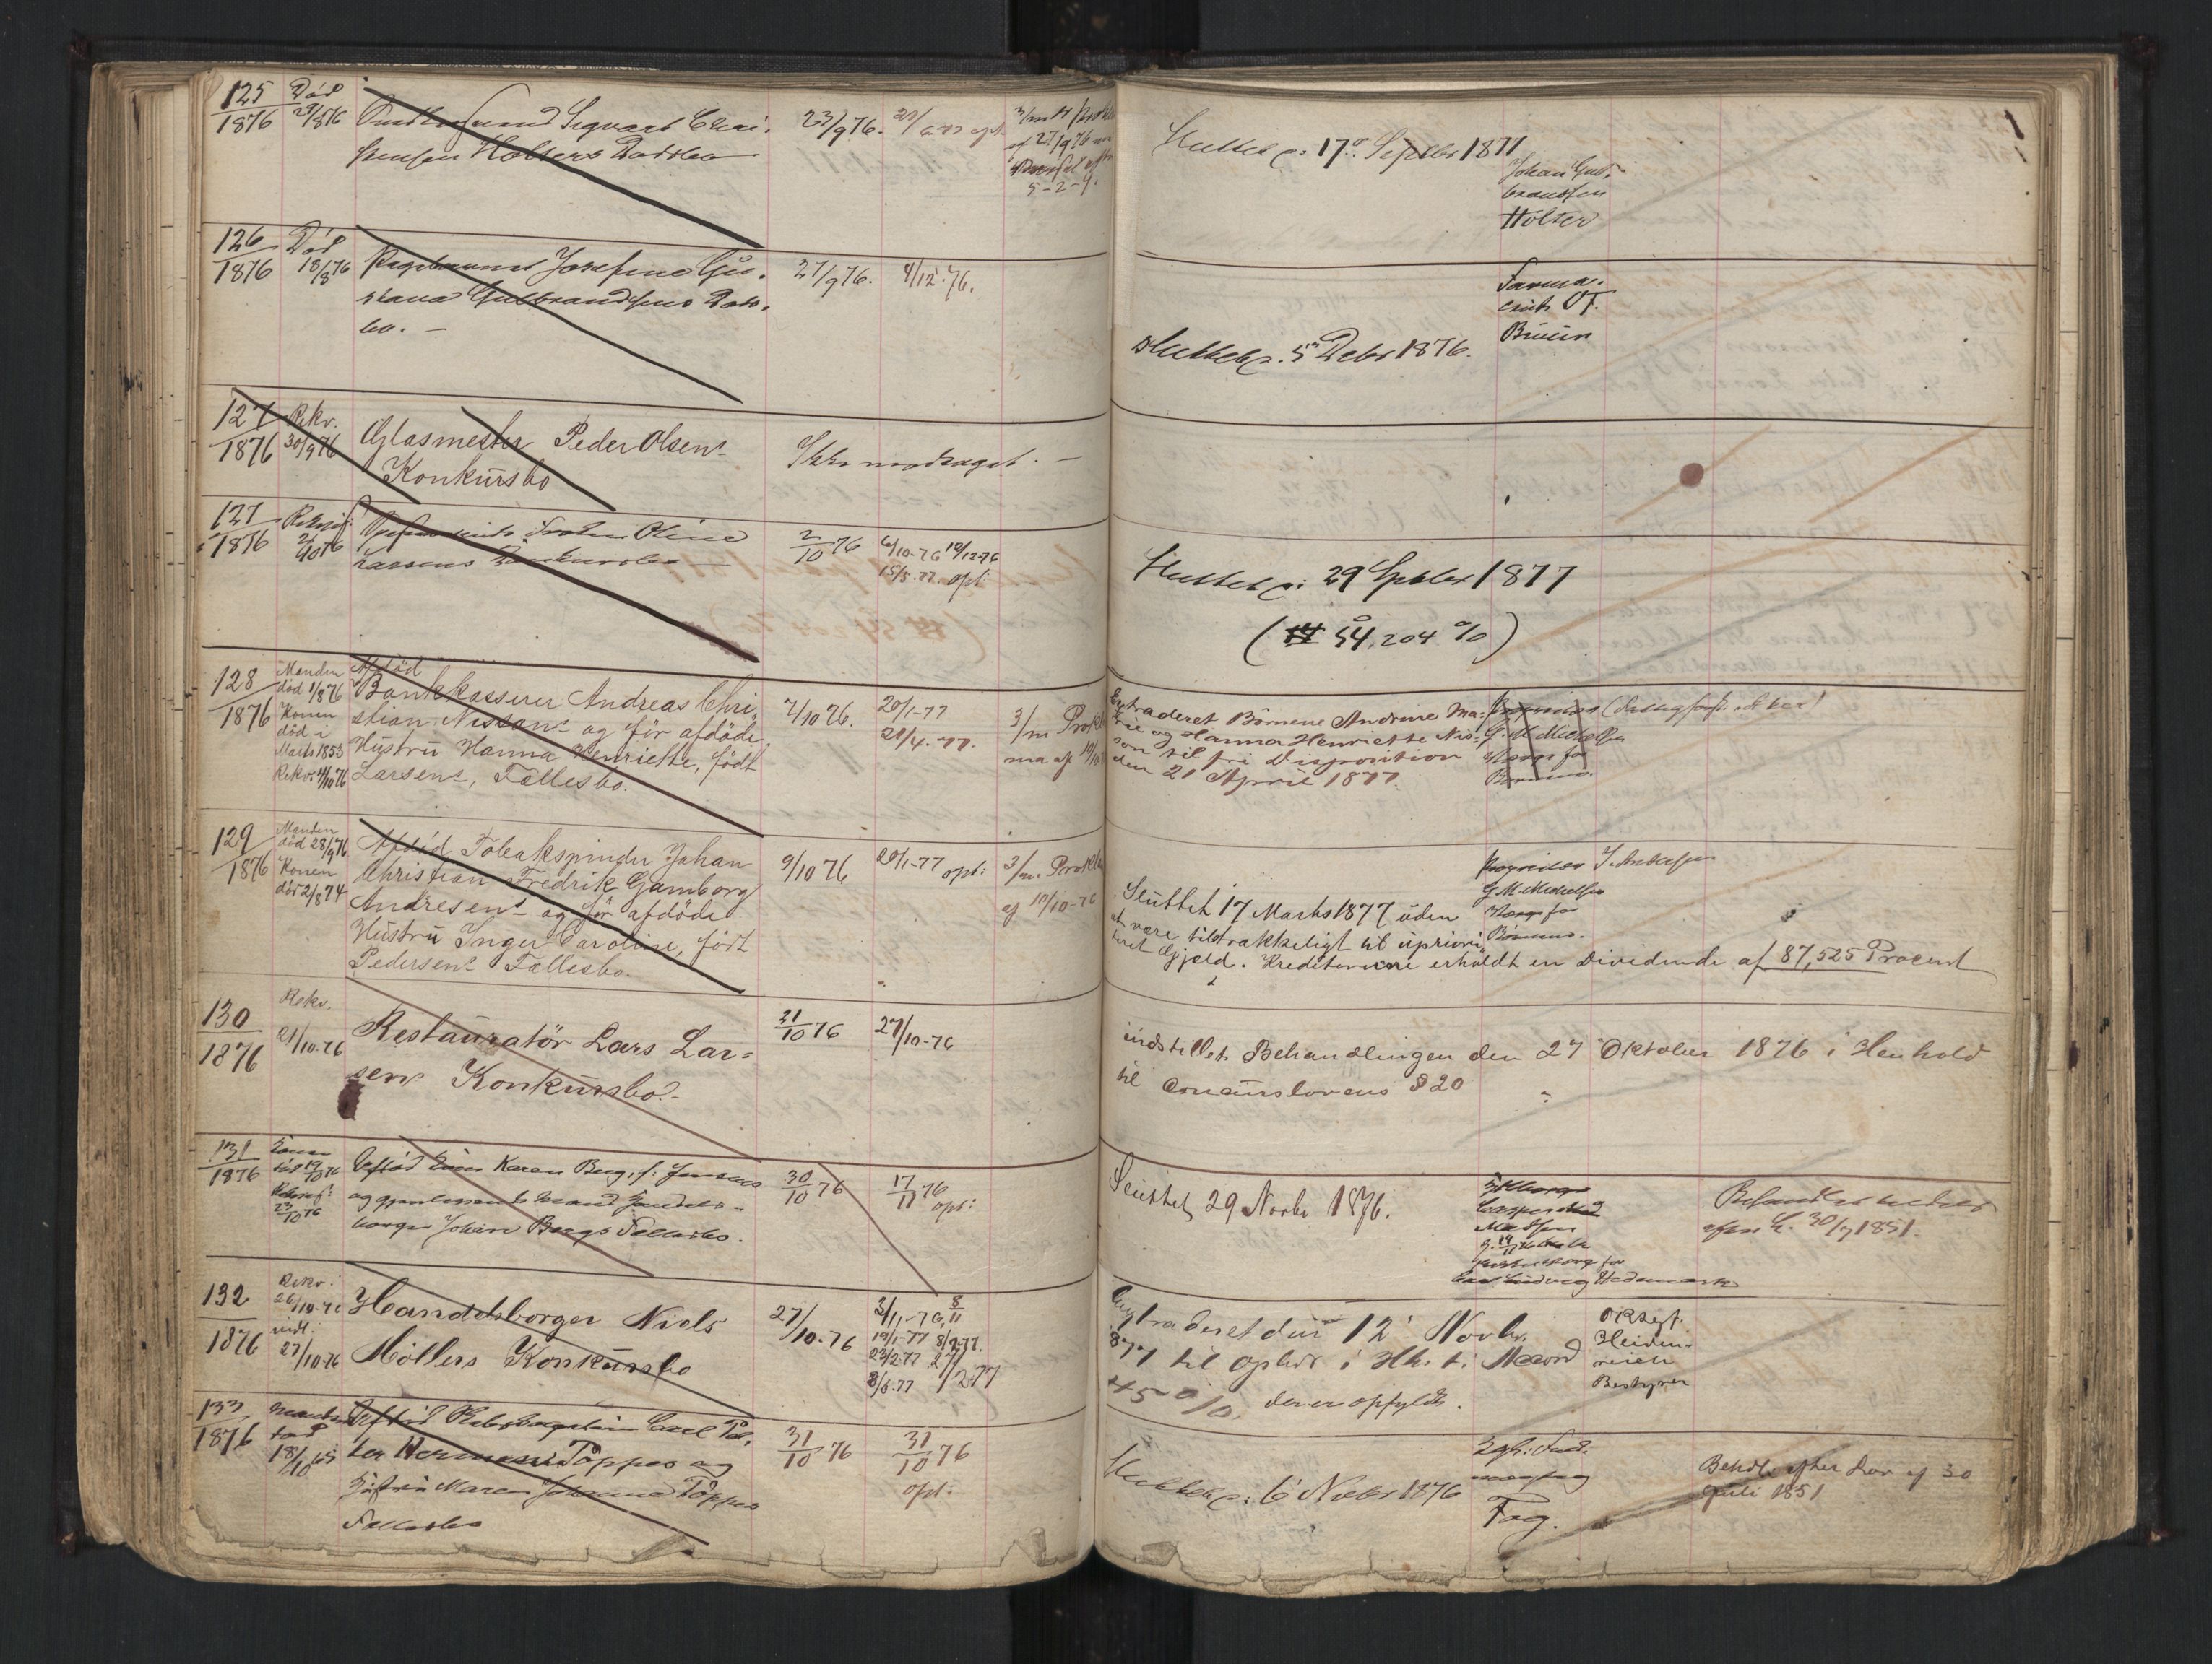 125
1876
Död
29/8 76
Sigvart Chri-
stensen Holters Dødsbo
23/9 76.
3/mdr Prokla
af 27/9 76
5-2-9.
Sluttet p: 17de Septbr 1877
Johan Gul-
brandsen
Holter
126
1876
Död
18/8 76
Pigebarnet Josefine Gu-
stava Gulbrandsens Døds-
bo. —
27/9 76.
4/12.76.
Sluttet p. 5te Debr 1876.
Farma-
ceut OT.
Bruun
127
1876
Rekv.
30/9 76
Glasmester Peder Olsens
Konkursbo
Ikke modtaget. —
127
1876
Rekvi:
2/10 76
Oline
Larsens Konkursbo
2/10 76
6/10-76 19/12-76
15/5.77. opt:
Sluttet p: 29 Septbr 1877
( 54,204 % )
128
1876
Manden
död 1/8 76
Konen
död i
Marts 1853
Rekv: 4/10 76
Afdöd
Bankkasserer Andreas Chri-
stian Nissens og før afdöde
Hustru Hanna Henriette, født
Larsens, Fællesbo.
7/10 76.
20/1-77
21/4.77.
3/m Prokla
ma af 10/10
Extraderet Börnene Andrine Ma-
rie og Hanna Henriette Nis-
sen til fri Disposition
den 21 April 1877.
G. M. Mickelsen
Værge for
Børnene.
129
1876
Manden
död 28/9 76
Konen
död 2/8 74
Afdöd Tobakspinder Johan
Christian Fredrik Gamborg
Andresens og för afdöde
Hustru Inger Caroline, født
Pedersens Fællesbo.
9/10 76
20/1-77 opt:
3/m. Prokla
af 10/10-76
Sluttet 17 Marts 1877 uden
at være tilstrækkeligt til uprivi-
leret Gjæld. Kreditorerne erholdt en Dividende af 87,525 Procent
G. M. Mickelsen
Værge for
Børnene.
130
1876
Rekv.
21/10-76
Restauratör Lars Lar-
sens Konkursbo.-
21/10 76
27/10-76
indstillet Behandlingen den 27 Oktober 1876 i Henhold
til Concurslovens § 20
131
1876
Konen
död 19/10 76
23/10 76
Afdöd Kone Karen Berg, f: Jensens
og gjenlevende Mand Handels-
borger Johan Bergs Fællesbo.
30/10 76
17/11 76
opt:
Sluttet 29 Novbr 1876.
Carl Ludvig Hedemark
Behandles
efter L. 30/7 1851.
132
1876
Rekv.
26/10-76
indl:
27/10-76
Handelsborger Niels
Möllers Konkursbo
27/10-76
3/11-76, 8/11
19/1-77 8/2-77.
23/2-77 27/2 77
8/6.77
Extraderet den 12 Novbr.
877 til opbud i Hh. til Akkord
45 %, der er opfyldt.
ORSagf.
Heiden-
reich
Bestyrer
133
1876
Manden
död
18/10 65
Afdöd Carl Pet-
ter Hermann Töppes og
Hustru Maren Johanne Töppes
Fællesbo
31/10 76
31/10 76
opt:
Sluttet p: 6 Novbr 1876
Fog.
Behdl. efter Lov af 30
Juli 1851